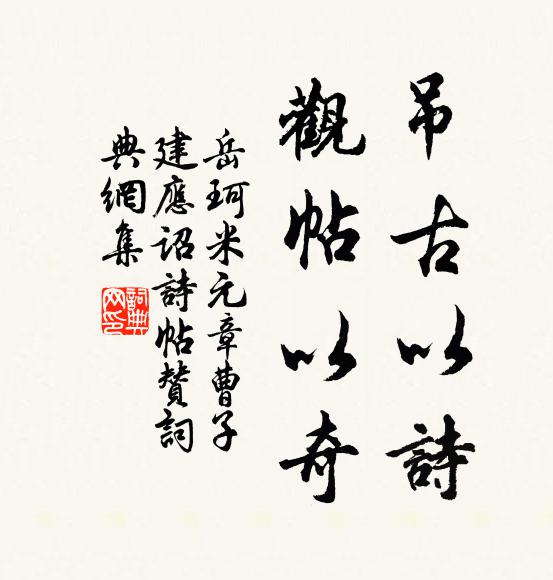 吊古以詩
觀帖以奇
岳珂米元章曹子
建應詔詩帖賛詞
典網集
詞典
网印